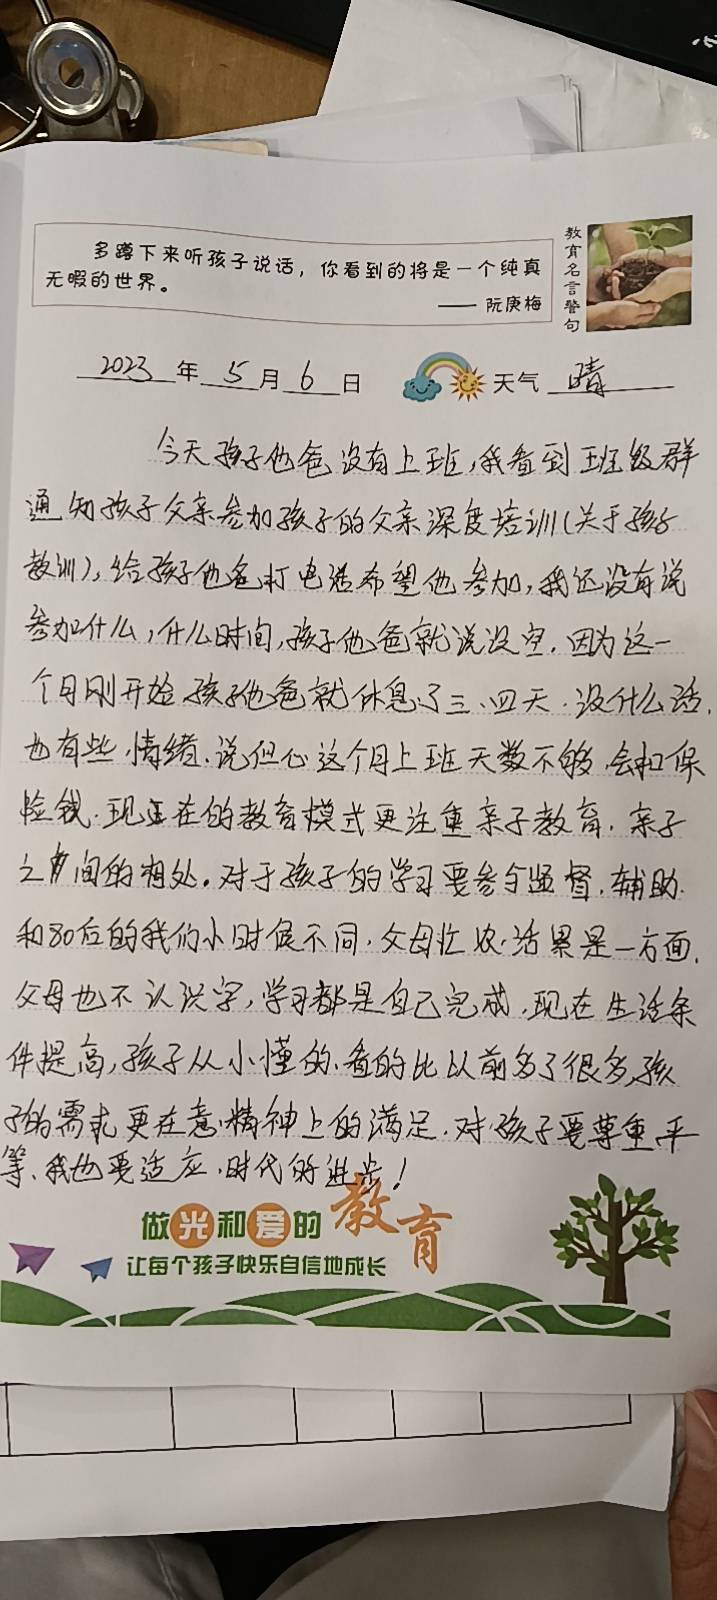 多蹲下来听孩子说话，你看到的将是一个纯真
无暇的世界。
—— 阮庚梅
教育名言警句
2023年5月6日 天气 晴
今天孩子他爸没有上班，我看到班级群
通知孩子父亲参加孩子的父亲深度培训(关于孩子
教训)，给孩子他爸打电话希望他参加，我还没有说
参加什么，什么时间，孩子他爸就说没空．因为这一
个月刚开始孩子他爸就休息了三、四天．没什么活．
也有些情绪．说但心这个月上班天数不够 会扣保
险钱．现在的教育模式更注重亲子教育．亲子
之间的相处。对于孩子的学习要参与监督．辅助．
和80后的我们小时侯不同．父母忙农活累是一方面．
父母也不认识字，学习都是自己完成．现在生活条
件提高，孩子从小懂的、看的比以前多了很多，孩
子的需求更在意精神上的满足．对孩子要尊重．平
等．我也要适应．时代的进步！
做光和爱的教育
让每个孩子快乐自信地成长